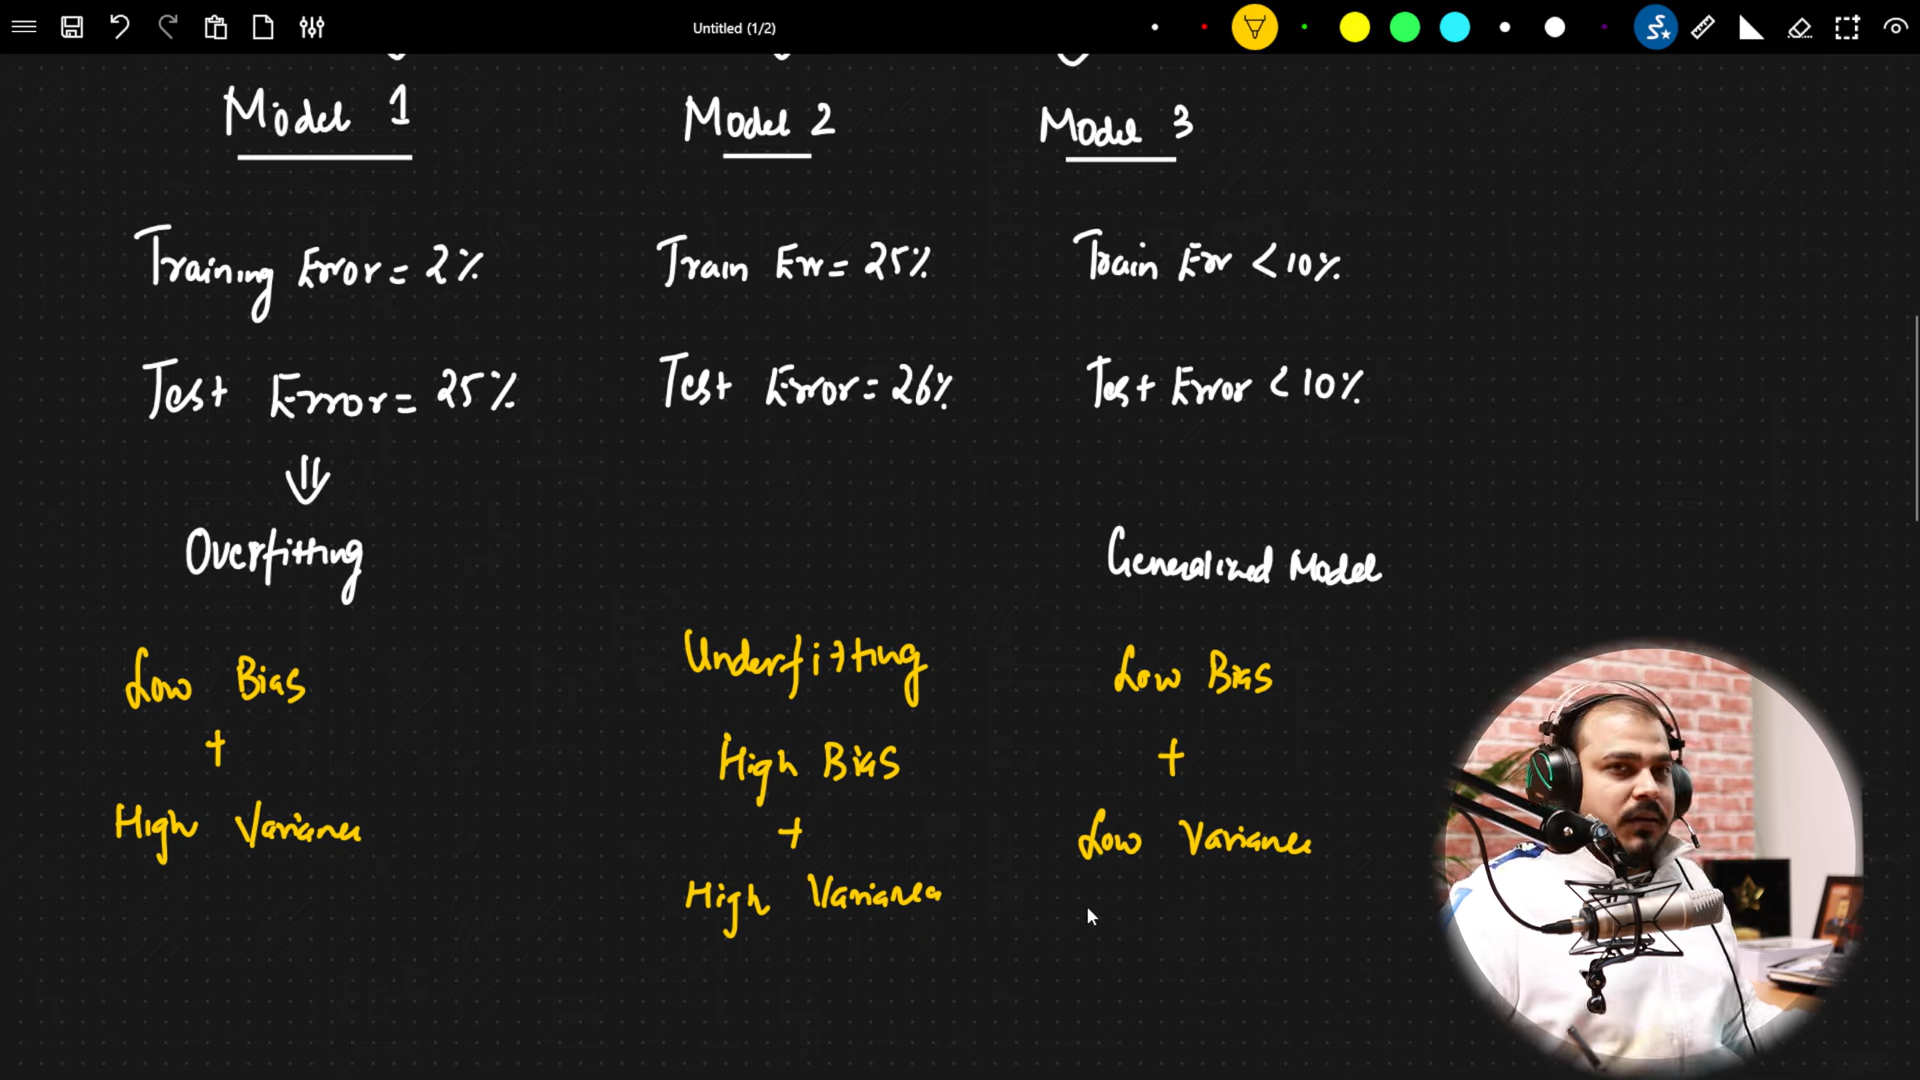 Untitled (1/2)
Model 1
Training Error = 2%
Test Error = 25%
Overfitting
Low Bias
+
High Variance
Model 2
Train Err = 25%
Test Error = 26%
Underfitting
High Bias
+
High Variance
Model 3
Train Err < 10%
Test Error < 10%
Generalized Model
Low Bias
+
Low Variance